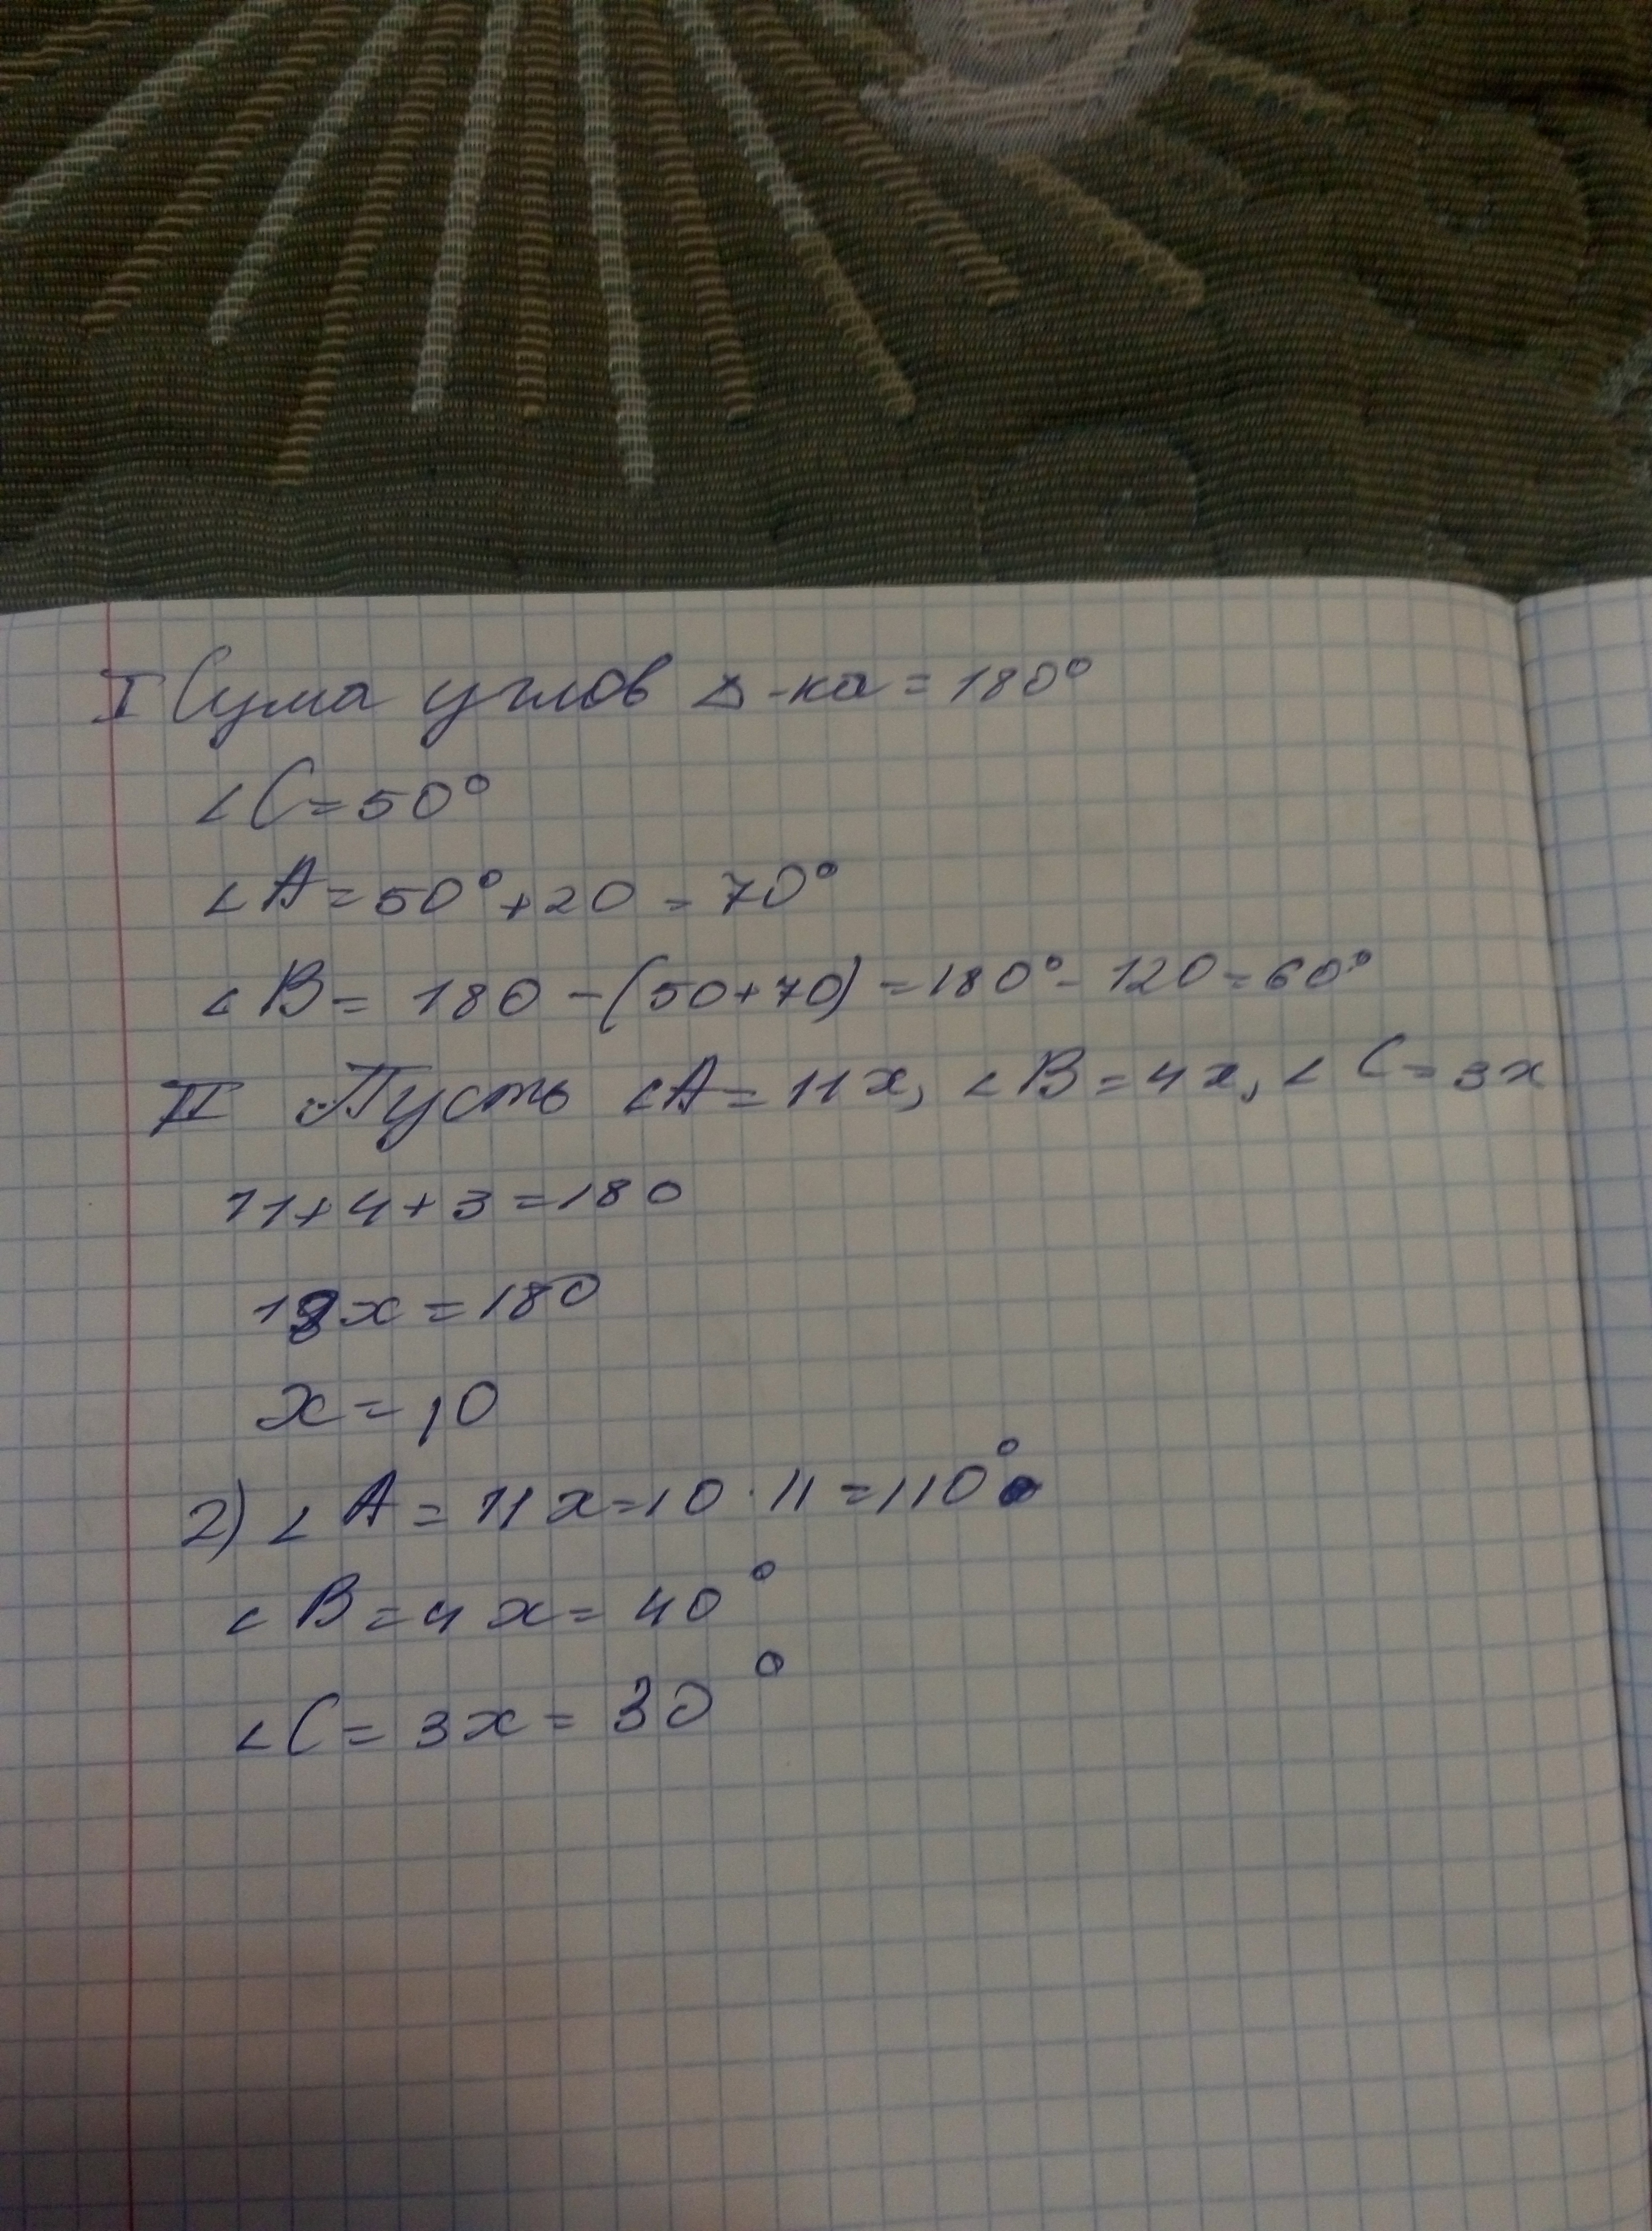 I Сума углов Δ-ка = 180°
∠C = 50°
∠A = 50° + 20 = 70°
∠B = 180 - (50+70) = 180° - 120 = 60°
II Пусть ∠A = 11x, ∠B = 4x, ∠C = 3x
11 + 4 + 3 = 180
18x = 180
x = 10
2) ∠A = 11x = 10 · 11 = 110°
∠B = 4x = 40°
∠C = 3x = 30°